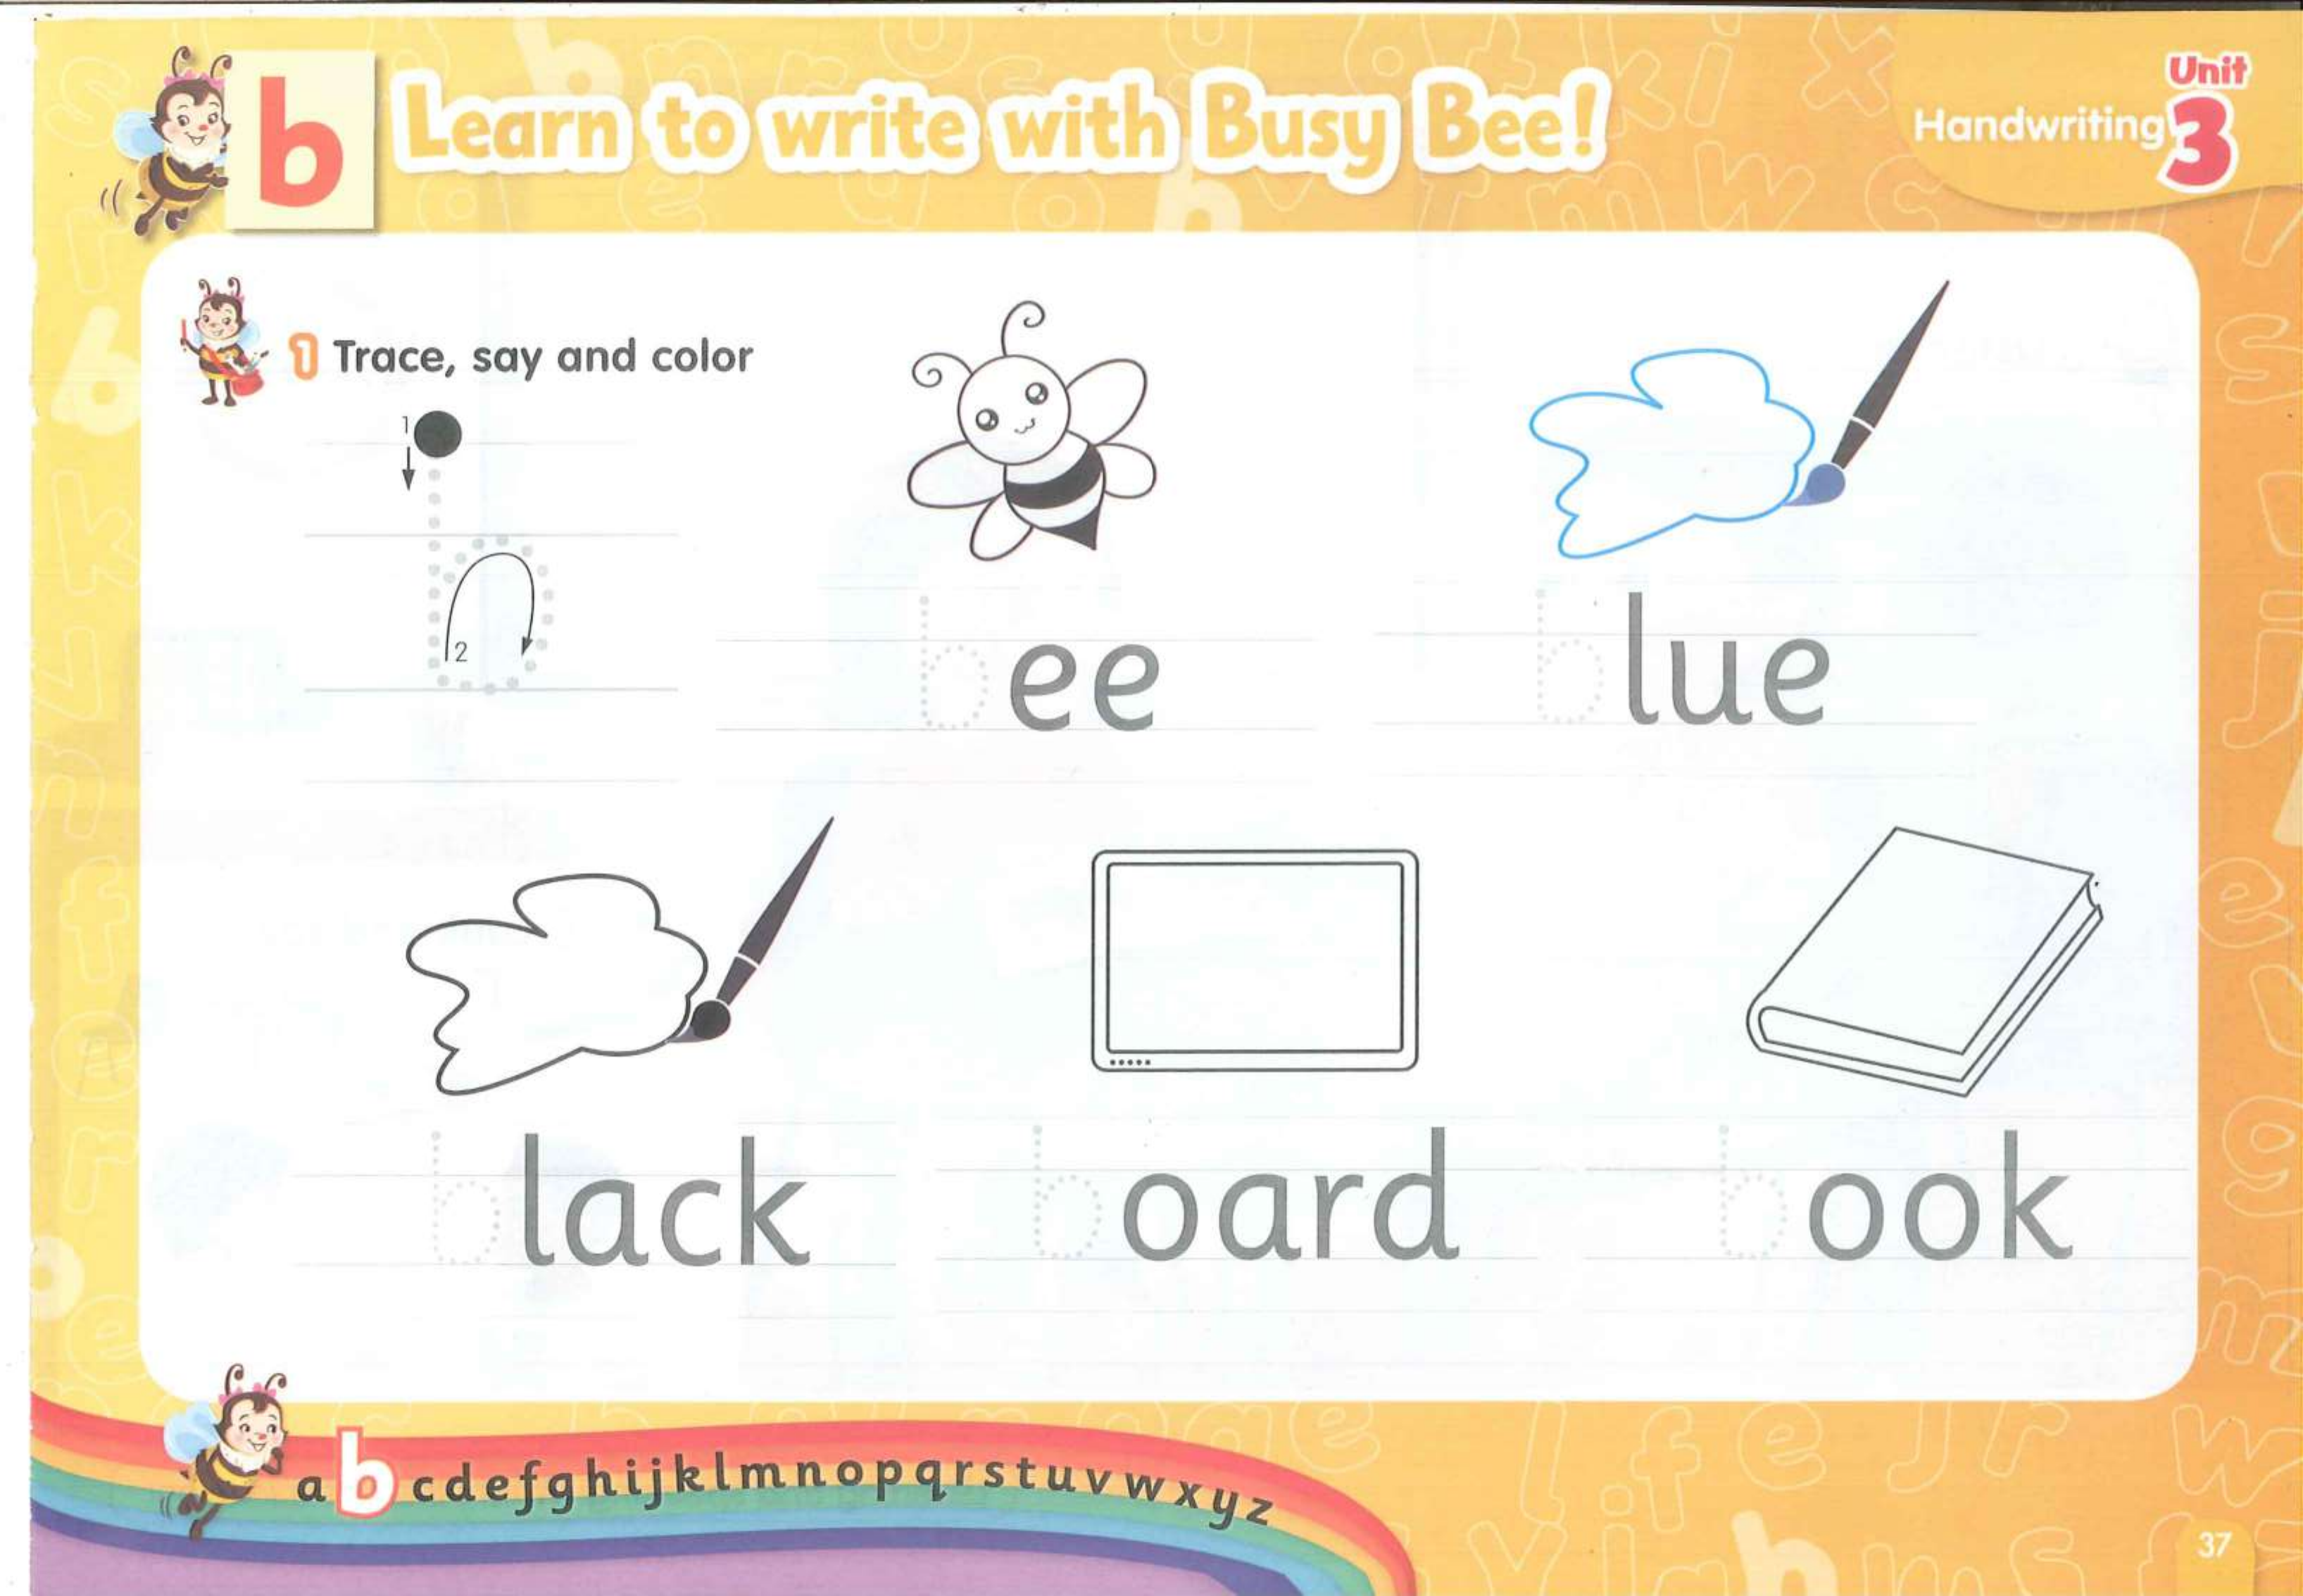 b Learn to write with Busy Bee!
Unit
Handwriting 3
1 Trace, say and color
1
2
bee
blue
black
board
book
a b c d e f g h i j k l m n o p q r s t u v w x y z
37